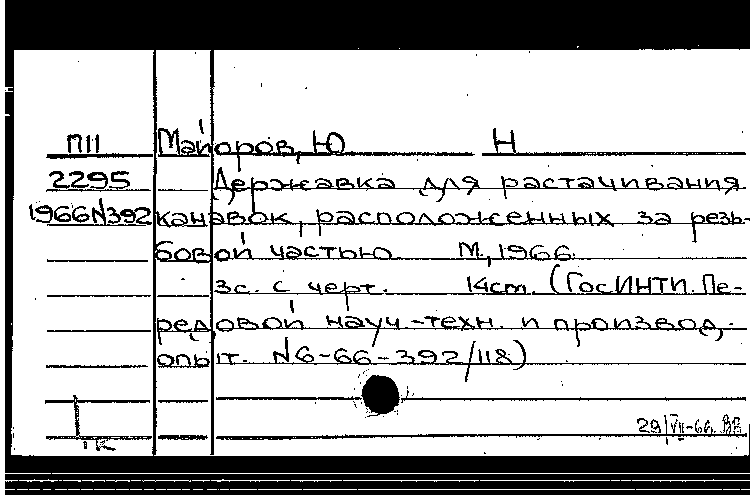 П11 Майоров, Ю. Н
2295 Державка для растачивания
1966N392 канавок, расположенных за резь-
бовой частью. М., 1966.
3с. с черт. 14cm. (ГосИНТИ. Пе-
редовой науч.-техн. и производ.
опыт. N6-66-392/118)
29/VII-66
1К